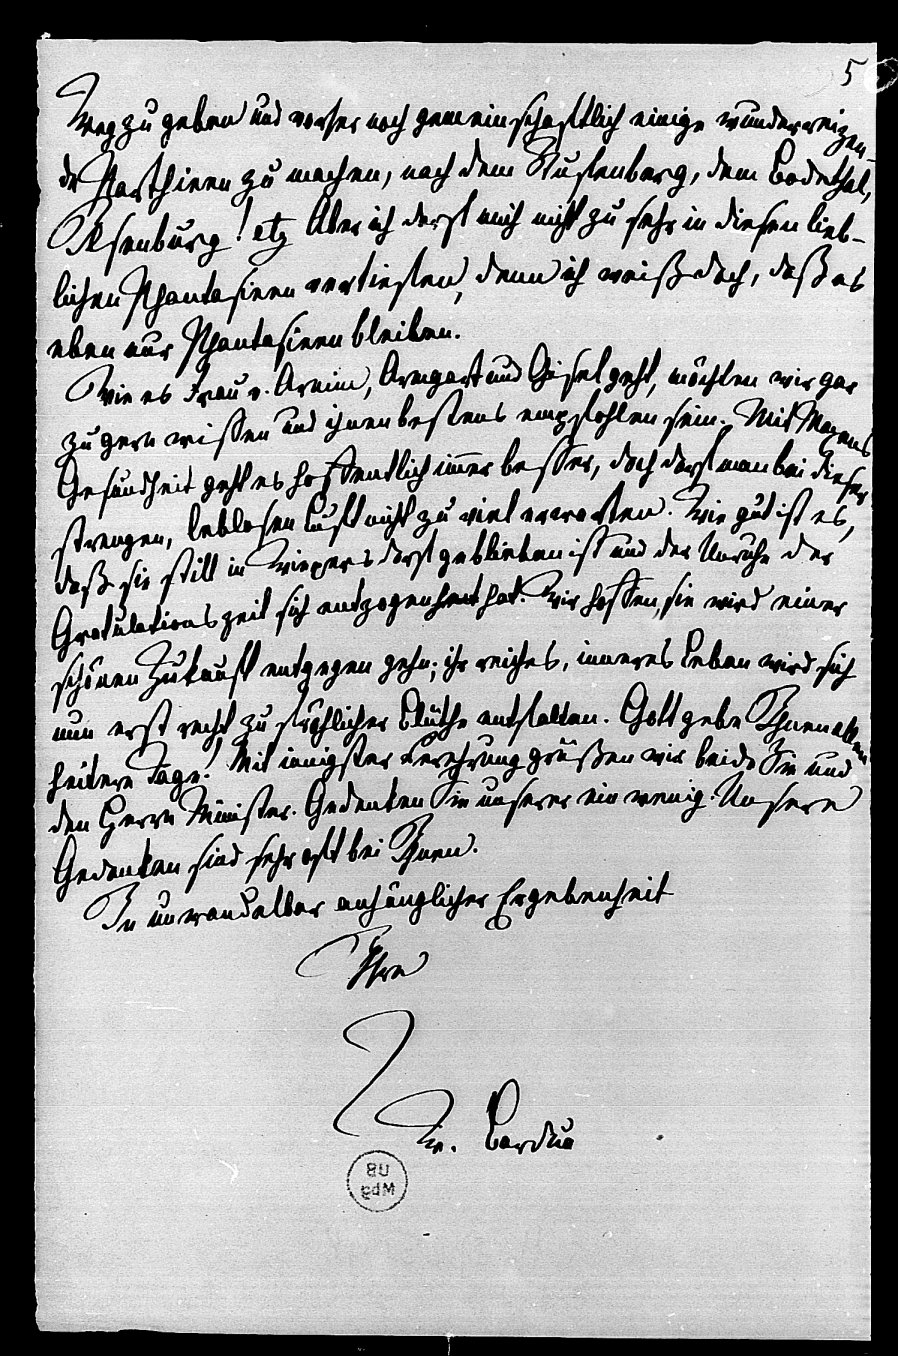 5
Weg zu geben und vorher noch gemeinschaftlich einige wunderreizen-
de Parthieen zu machen, nach dem Stufenberg, dem Bodethal,
Ilsenburg! etz Aber ich darf mich nicht zu sehr in diesen lieb-
lichen Phantasieen vertiefen, denn ich weiß doch, daß es
eben nur Phantasieen bleiben.
Wie es Frau v. Arnim, Armgart und Gisel geht, möchten wir gar
zu gern wissen und ihnen bestens empfohlen sein. Mit Maxens
Gesundheit geht es hoffentlich immer besser, doch darf man bei dieser
strengen, leblosen Luft nicht zu viel erwarten. Wie gut ist es,
daß sie still in Wiepersdorf geblieben ist und der Unruhe der
Gratulationszeit sich entzogen hat. Wir hoffen, sie wird einer
schönen Zukunft entgegen gehn; ihr reiches, inneres Leben wird sich
nun erst recht zu fröhlicher Blüthe entfalten. Gott gebe Ihnen allen
heitere Tage! Mit innigster Verehrung grüßen wir beide Sie und
den Herrn Minister. Gedenken Sie unserer ein wenig. Unsere
Gedanken sind sehr oft bei Ihnen.
In unwandelbar anhänglicher Ergebenheit
Ihre
W. Bardua
UB
Mbg